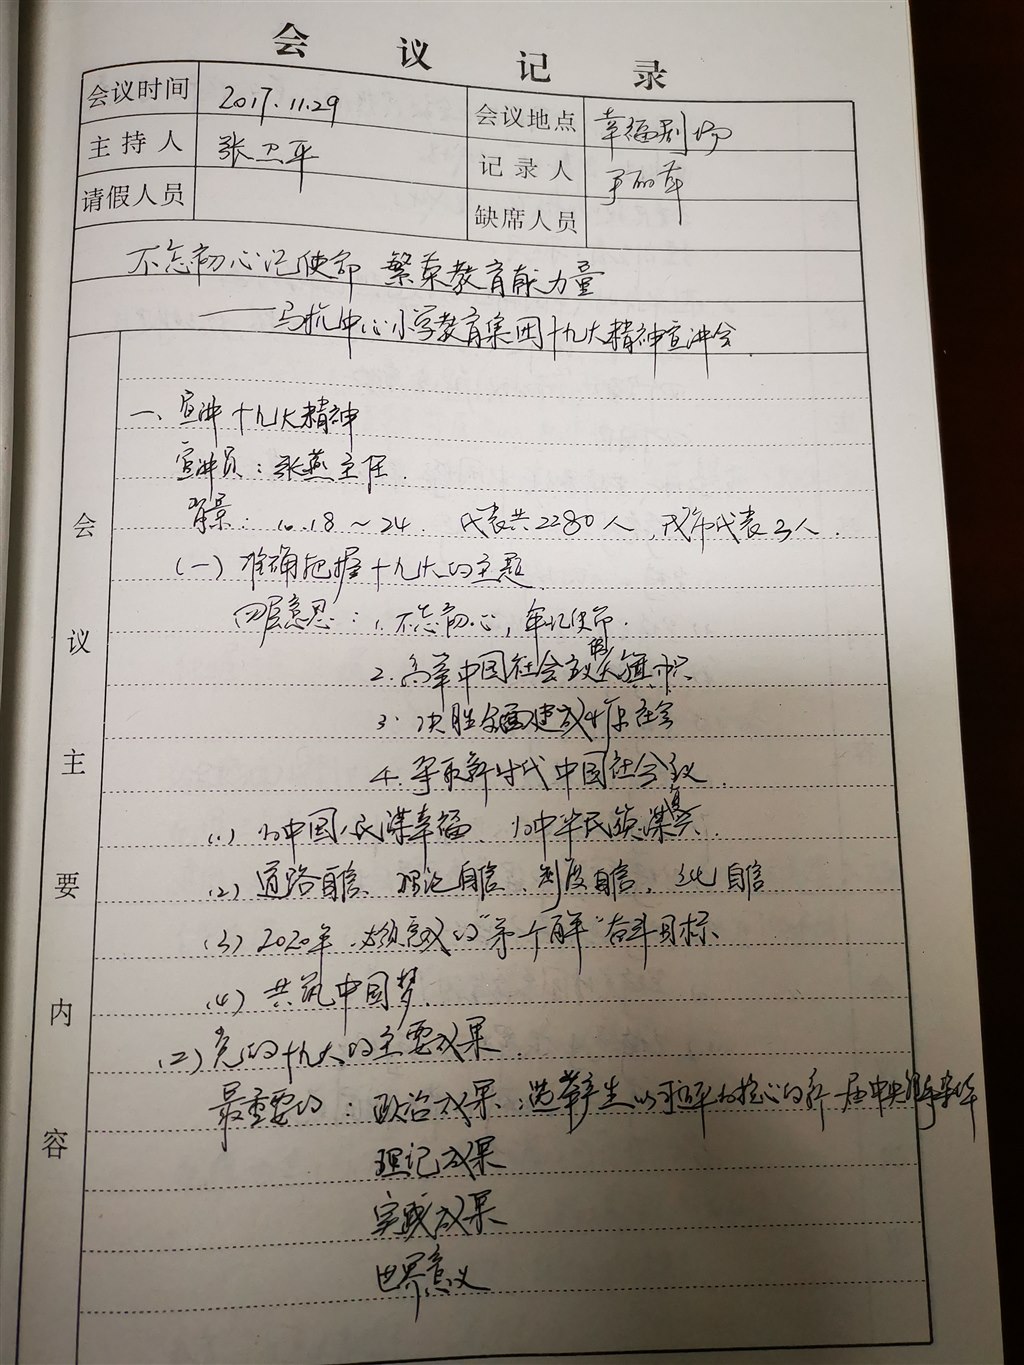 会议记录
会议时间 2017.11.29 会议地点 幸福剧场
主持人 张卫平 记录人
请假人员 缺席人员
不忘初心记使命 繁荣教育献力量
——马杭中心小学教育集团十九大精神宣讲会
会议主要内容
一、宣讲十九大精神
宣讲员：张燕主任.
背景：10.18～24. 代表共2280人，我市代表3人.
(一)准确把握十九大的主题
四层意思：1.不忘初心，牢记使命.
2.高举中国社会主义的大旗帜
3.决胜全面建成小康社会
4.夺取新时代中国社会主义.
(1)为中国人民谋幸福、为中华民族谋复兴.
(2)道路自信、理论自信、制度自信、文化自信
(3)2020年.必须完成的“第一个百年”奋斗目标、
(4)共筑中国梦.
(二)党的十九大的主要成果.
最重要的：政治成果：选举产生以习近平为核心的新一届中央领导集体
理论成果
实践成果
世界意义